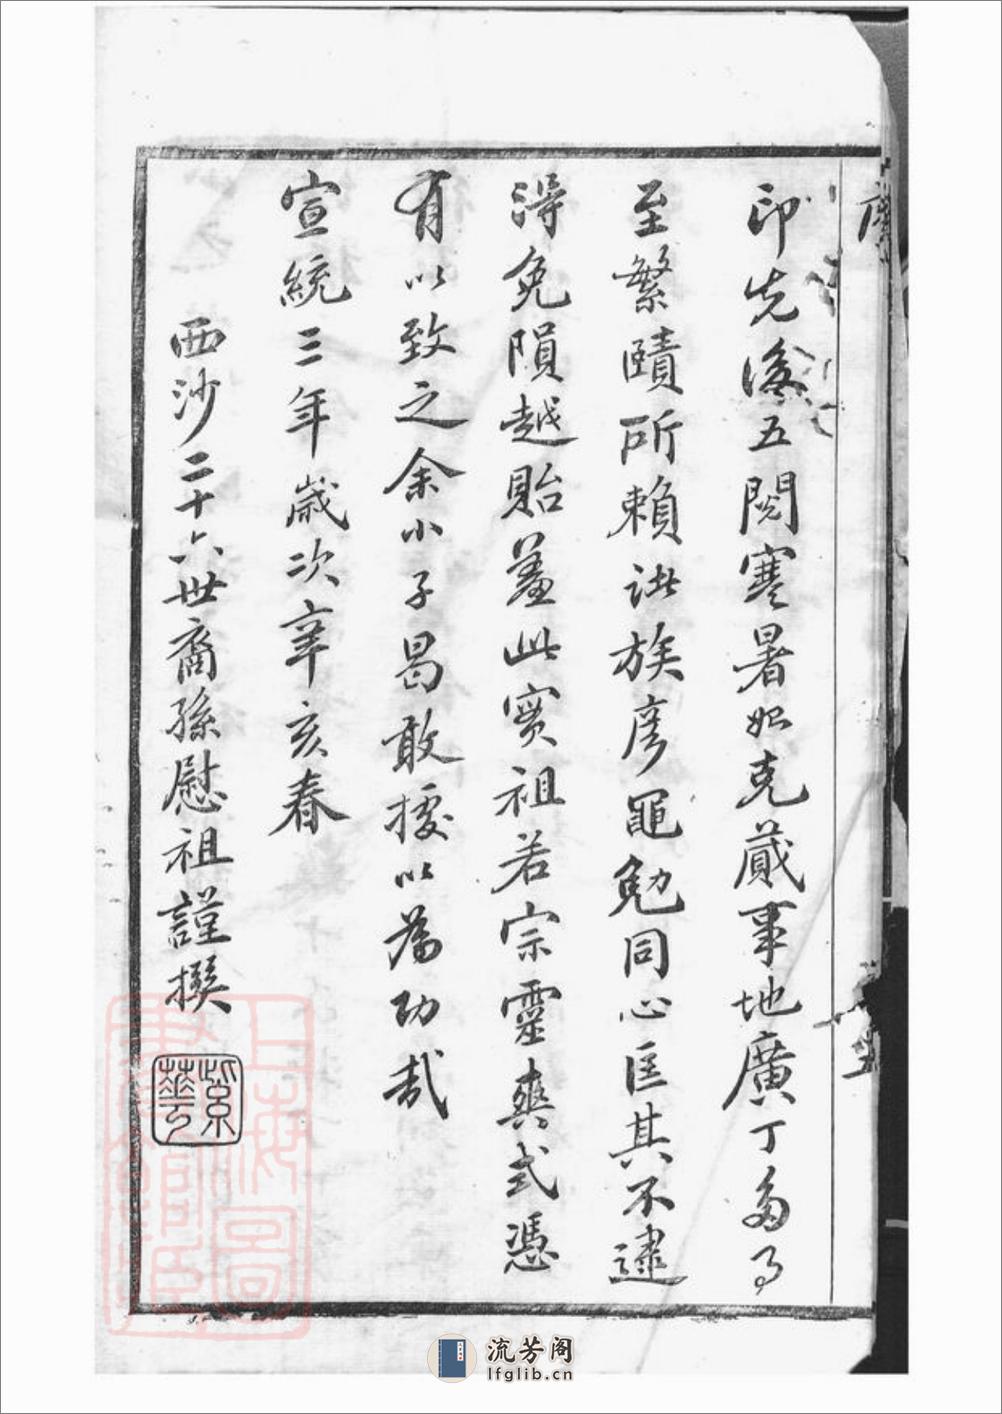 印先後五閱寒暑始克蕆事地廣丁多事
至繁賾所賴諸族彥黽勉同心匡其不逮
得免隕越貽羞此實祖若宗靈爽式憑
有以致之余小子曷敢援以為功哉
宣統三年歲次辛亥春
西沙二十六世裔孫慰祖謹撰
紫華
上海圖書館藏
流芳阁
lfglib.cn